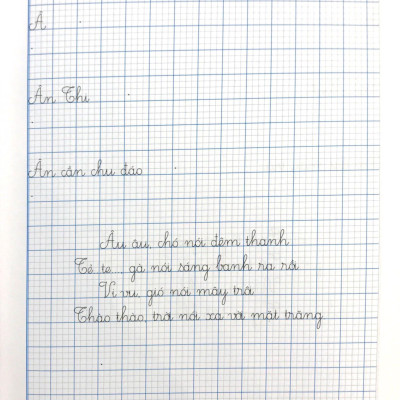 Â
Ân Thi
Ân cần chu đáo
Âu âu, chó nói đêm thanh
Tẻ te... gà nói sáng banh ra rồi
Vi vu, gió nói mây trôi
Thào thào, trời nói xa vời mặt trăng